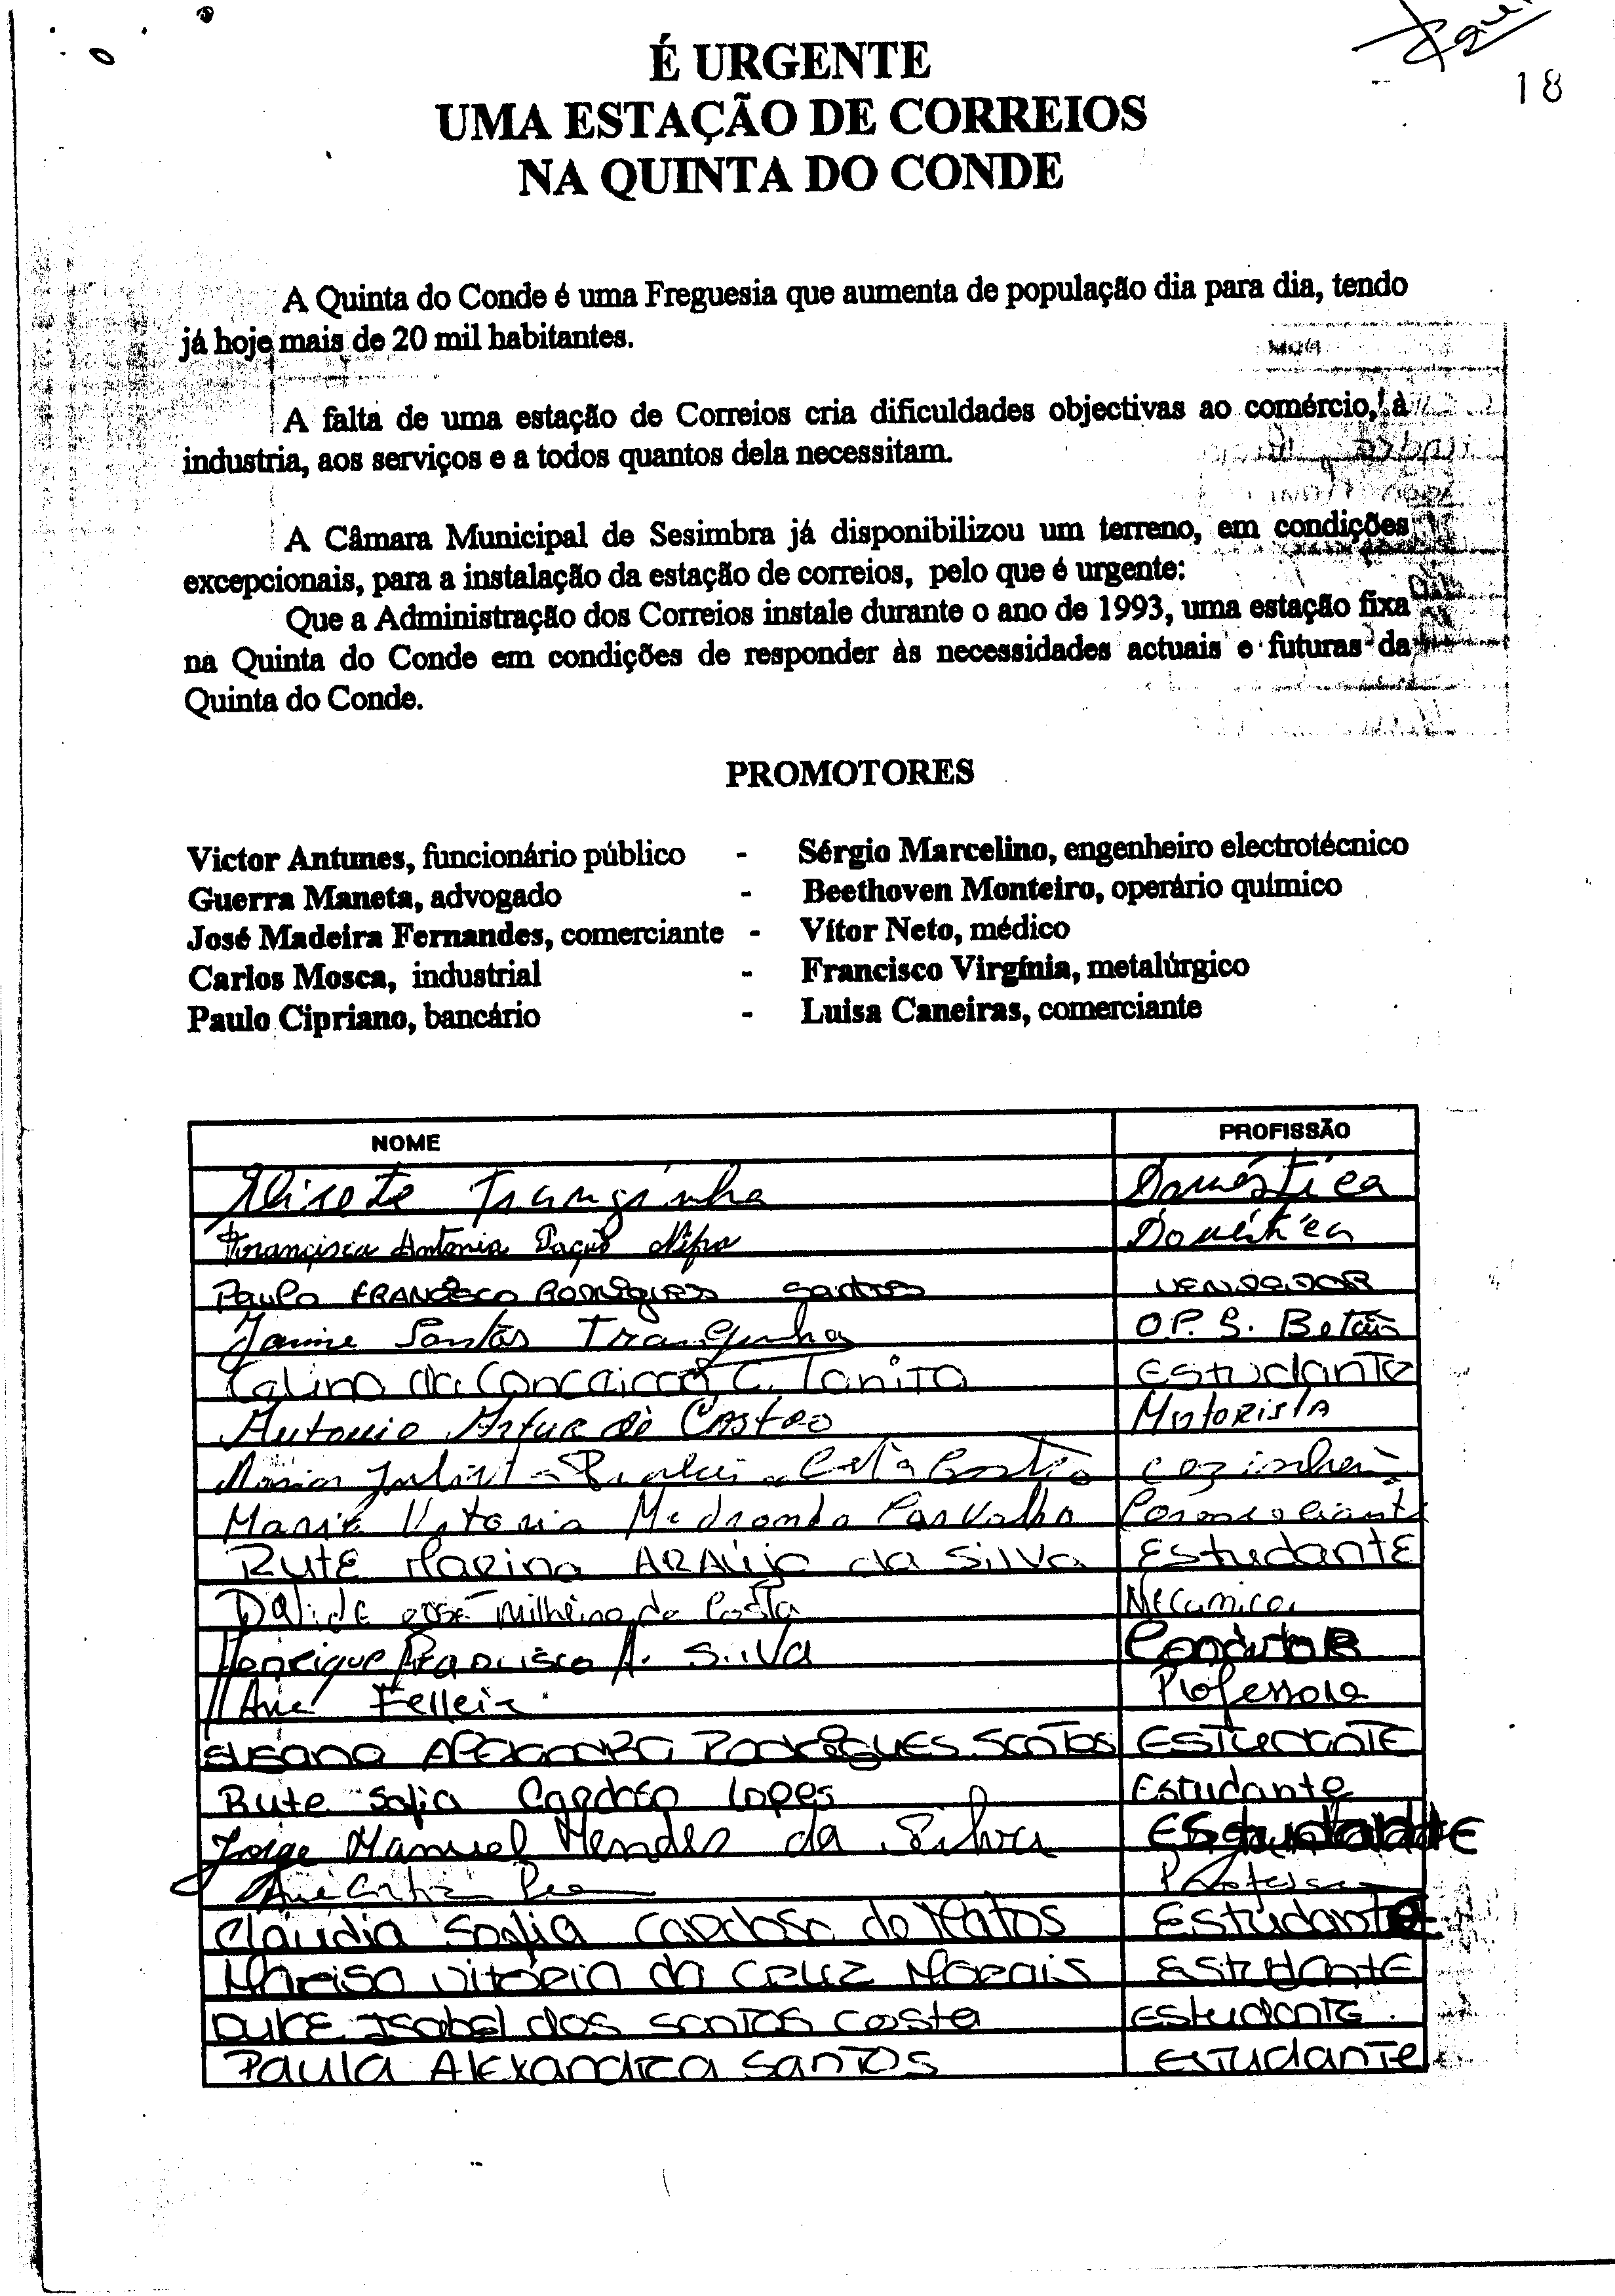 18
É URGENTE
UMA ESTAÇÃO DE CORREIOS
NA QUINTA DO CONDE
A Quinta do Conde é uma Freguesia que aumenta de população dia para dia, tendo
já hoje mais de 20 mil habitantes.
A falta de uma estação de Correios cria dificuldades objectivas ao comércio, à
industria, aos serviços e a todos quantos dela necessitam.
A Câmara Municipal de Sesimbra já disponibilizou um terreno, em condições
excepcionais, para a instalação da estação de correios, pelo que é urgente:
Que a Administração dos Correios instale durante o ano de 1993, uma estação fixa
na Quinta do Conde em condições de responder às necessidades actuais e futuras da
Quinta do Conde.
PROMOTORES
Victor Antunes, funcionário público - Sérgio Marcelino, engenheiro electrotécnico
Guerra Maneta, advogado - Beethoven Monteiro, operário químico
José Madeira Fernandes, comerciante - Vítor Neto, médico
Carlos Mosca, industrial - Francisco Virgínia, metalúrgico
Paulo Cipriano, bancário - Luisa Caneiras, comerciante
NOME PROFISSÃO
Tranginha Doméstica
Francisca Antonia Doméstica
Paulo FRANCISCO RODRIGUES Santos VENDEDOR
Jaime Santos Tranginha O.P.S. Betão
da Conceição C. Estudante
Antonio Artur de Castro Motorista
Maria
Maria Vitoria Carvalho Comerciante
RUTE Marina ARAÚJO da Silva Estudante
Milheiro da Costa Mecanico
Henrique Francisco A. Silva Condutor
Ana Professora
Alexandra Rodrigues Santos Estudante
Rute Sofia Cardoso Lopes Estudante
Jorge Manuel Mendes da Silva Estudante
Ana Professora
Cláudia Sofia Cardoso de Matos Estudante
Marisa Vitória da Cruz Morais Estudante
Dulce Isabel dos Santos Costa Estudante.
Paula Alexandra Santos Estudante